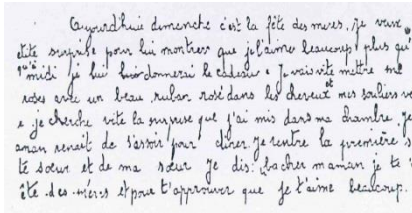 Aujourd'huie dimenche c'est la fête des mères. Je veux
etite surprise pour lui montrers que je l'aimes beaucoup plus qu'
midi je lui donnerai le cadeau. Je vais vite mettre me
roses avec un beau ruban rose dans les cheveux et mes souliers ve
. je cherche vite la surprise que j'ai mis dans ma chambre. Je
aman venait de s'assoir pour diner. Je rentre la première s
te sœur et de ma sœur Je dis: maman je te
ête des mères et pour t'approuver que je t'aime beaucoup.